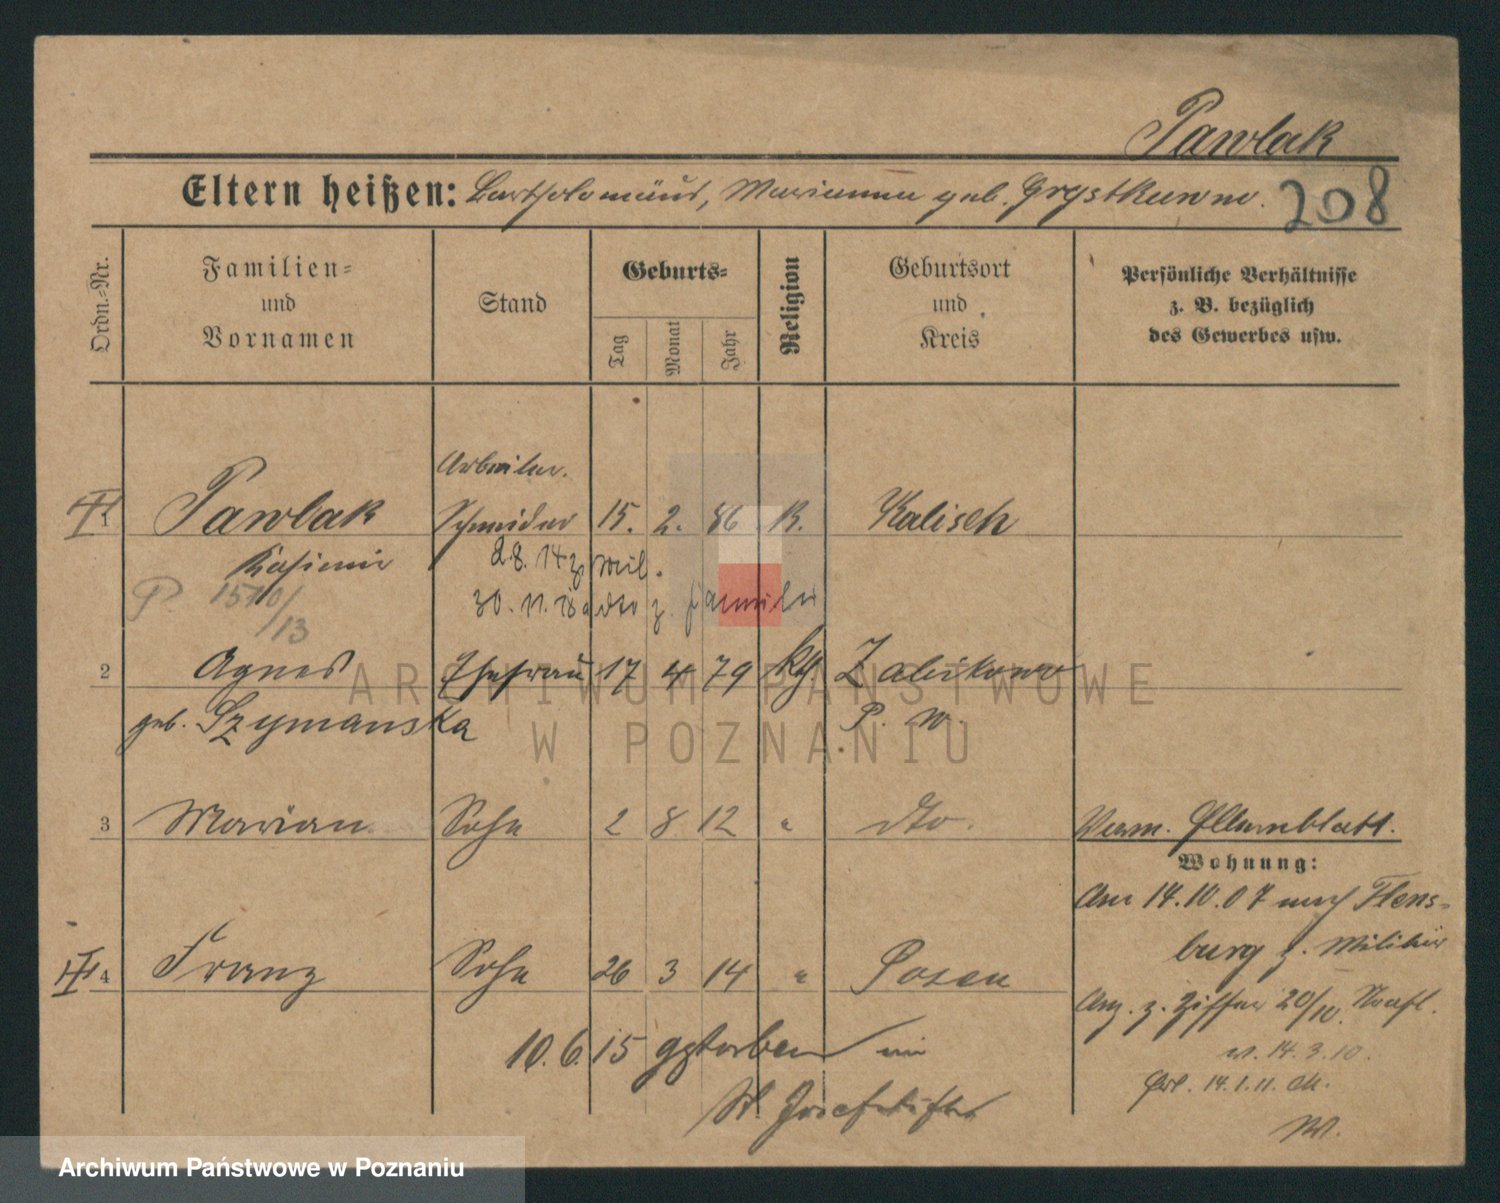 Pawlak
Eltern heißen: Bartholomäus, Marianna geb. Grystkuwno.
208
Ordn.=Nr.
Familien=
und
Vornamen
Stand
Geburts=
Tag
Monat
Jahr
Religion
Geburtsort
und
Kreis
Persönliche Verhältnisse
z. B. bezüglich
des Gewerbes usw.
Arbeiter.
1 Pawlak Schneider 15. 2. 86 K. Kalisch
Kasimir 2.8.14 z. Mil.
P. 1510/13 30.11.18 dto z. Familie
2 Agnes Ehefrau 17 4 79 kth. Zabikowo
geb. Szymanska P. W.
3 Marian Sohn 2 8 12 " dto.
Verm. Elternblatt.
Wohnung:
Am 14.10.07 nach Flens=
burg z. Militär
4 Franz Sohn 26 3 14 " Posen
Anz. z. Ziffer 20/10.
10.6.15 gestorben im
v. 14.3.10.
14.1.11.
St. Josefstift
W.
ARCHIWUM PAŃSTWOWE
W POZNANIU
Archiwum Państwowe w Poznaniu